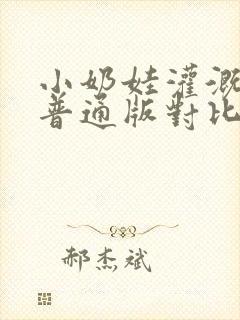 小奶娃灌溉
普通版對比
郝杰斌